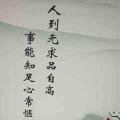 人到无求品自高
事能知足心常惬